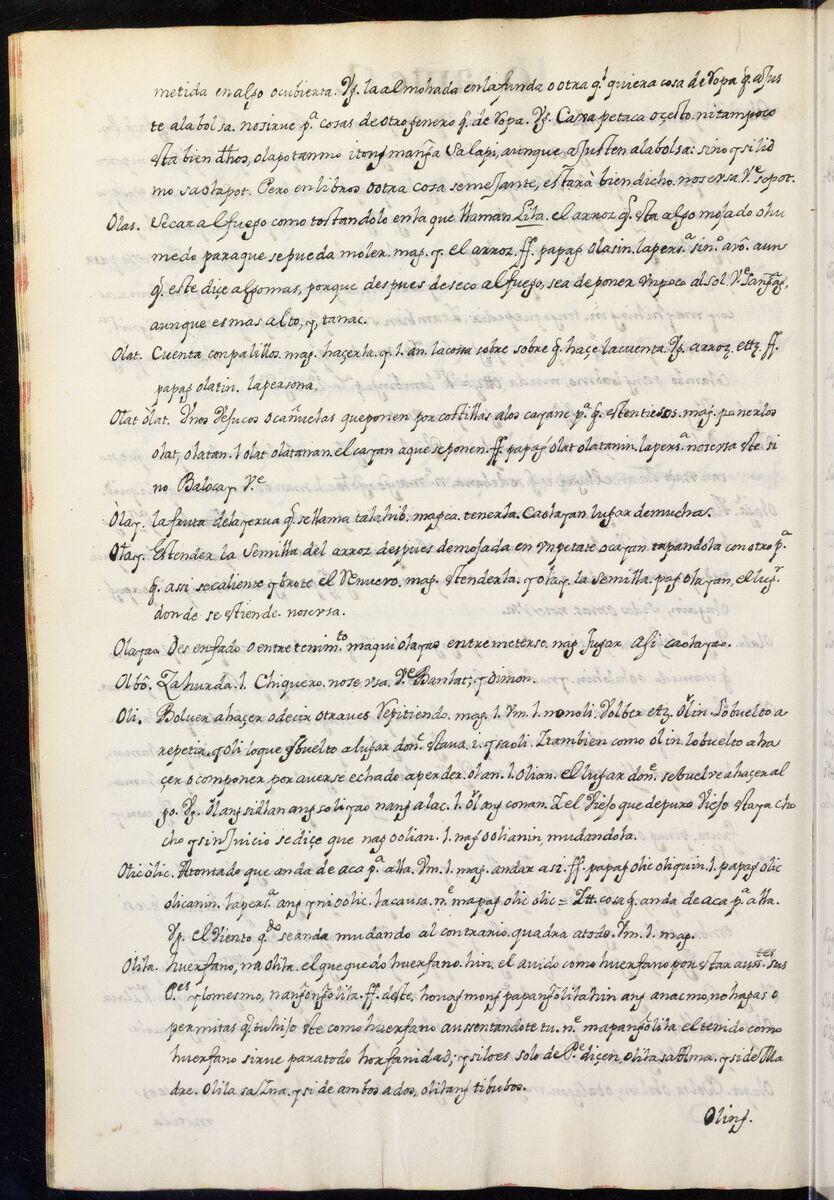 metida en algo o cubierta. Vg. la almohada en la funda o otra ql quiera cosa de ropa q. ajus
te a la bolsa. no sirue pa cosas de otro genero q. de ropa. Vg. Caxa petaca o çesto. ni tampoco
esta bien dhos, olapotanmo itong manga salapi, aunque ajusten a la bolsa: sino y silid
mo sa olapot. Pero en libros o otra cosa semejante, estarà bien dicho. nos ersa. Ve sopot.
Olas. Secar al fuego como tostandolo en la que llaman Lila. el arroz q. esta algo mojado o hu
medo para que se pueda moler. mag. y. el arroz. ff. papag olasin. la persa sin.o arô. aun
q. este diçe algo mas, porque despues de seco al fuego, sea de poner vn poco al sol. Ve sangag,
aunque es mas alto, y, tanac.
Olat. Cuenta con palillos. mag. haçerla. y. l. an. la cossa sobre sobre q. haçe la cuenta. Vg. arroz. ettz. ff.
papag olatin. la persona.
Olat ôlat. Vnos vejucos o cañuelas que ponen por costillas a los cayanc pa q. esten tiesos. mag. ponerlos
olat, olatan. l olat olatanan. el cayan a que se ponen. ff. papag olat olatanin. la persa. nos ersa este si
no Balocay Ve
Òlay. la fruta de la yerua q. se llama talahib. magca. tenerla. Caolayan lugar de muchas.
Olay. Estender la Semilla del arroz despues de mojada en vn petate o cayan tapandola con otro pa
q. asi se caliente y brote el renuevo. mag. estenderla. y olay. la semilla. pag olayan, el lugr
donde se estiende. nos ersa.
Olayao Desenfado o entretenimto maqui olayao entremeterse. nag jugar asi caolayao.
Olbô. Zahurda. l. Chiquero. nos ersa. Ve Banlat; y Dimon.
Oli. Boluer a haçer o decir otra ves repitiendo. mag. l. Vm. l. monoli. Volber etz. ôlin. lo buelto a
repetir. y oli lo que es buelto a lugar done estava, i. y saoli. Ztambien como olin. lo buelto a ha
çer o componer por auerse echado a perder. olan. l. olian. el lugar done se buelve a haçer al
go. Vg. ôlang sidlan ang soliyao nang alac. l. ôlang conan. Z el viejo que de puro viejo esta ya cho
cho y sin juicio se diçe que nag oolian. l. nag oolianin, mudandola.
Olic òlic. Atontado que anda de aca pa alla. Vm. l. mag. andar asi. ff. papag olic oliquin. l. papag olic
olicanin. la persa ang y nioolic. la causa. ne mapag olic olic = Ztt. cosa q. anda de aca pa alla.
Vg. el viento qdo se anda mudando al contrario. quadra a todo. Vm. l. mag.
Olila. huerfano, na olila. el que quedo huerfano. hin. el auido como huerfano por estar ausstes sus
Pes y lo mesmo, nangongolila. ff. deste, houag mong papangolilahin ang anac mo, no hagas o
permitas q. tu hijo este como huerfano aussentandote tu. ne mapangolila el tenido como
huerfano sirue para todo horfanidad; y si lo es solo de Pe diçen, olila sa Ama. y si de Ma
dre. Olila sa Ina. y si de ambos a dos, olilang tibubos.
Oling.